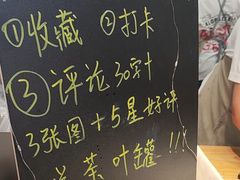 ①收藏 ②打卡
③评论30字+
3张图+5星好评
送茶叶罐!!!